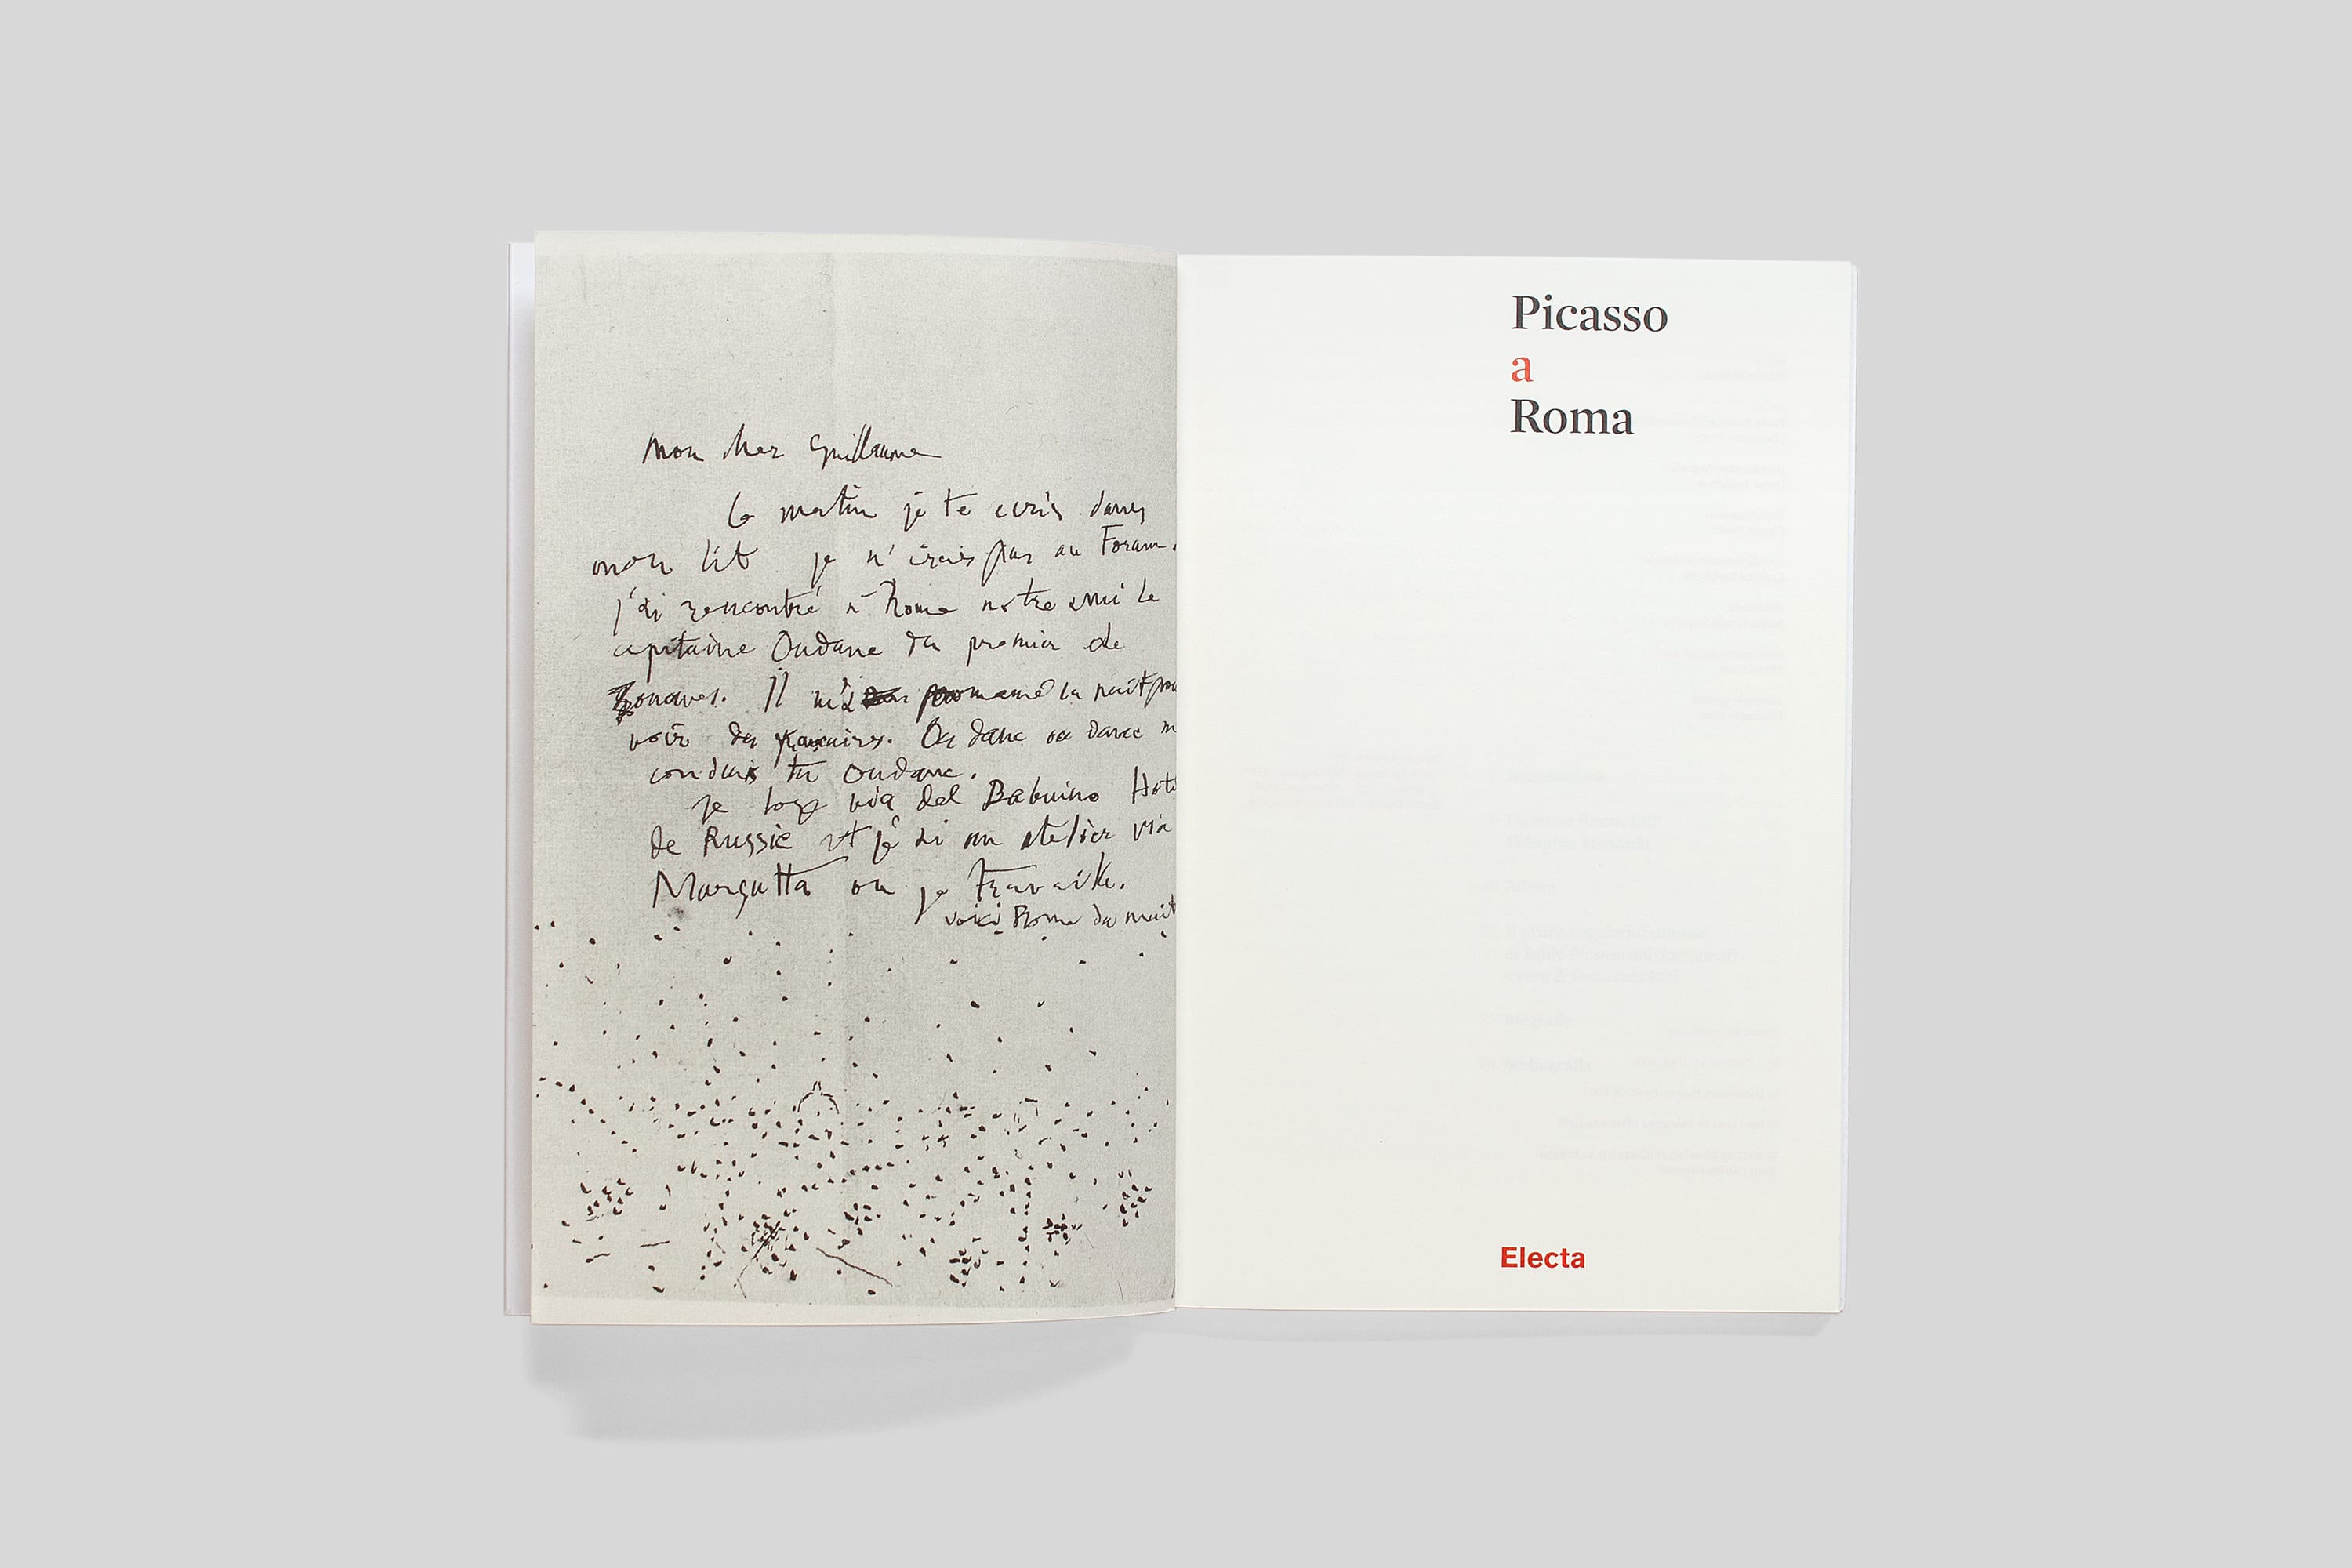 mon cher Guillaume
Ce matin je te ecris dans
mon lit je n'irais pas au Forum.
j'ai rencontré a Rome notre ami le
capitaine Oudane du premier de
zouaves. Il m'a promené la nuit pour
voir des Ou danc ou danc m
conduis tu Oudanc.
je loge via del Babuino Hot
de Russie et j'ai un atelier via
Margutta ou je travaille.
voici Rome da nuit
Picasso
a
Roma
Electa